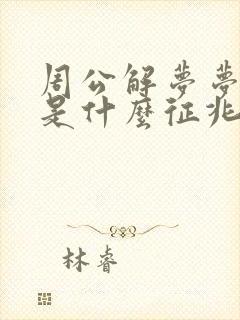 周公解梦梦
是什麼征兆
林睿